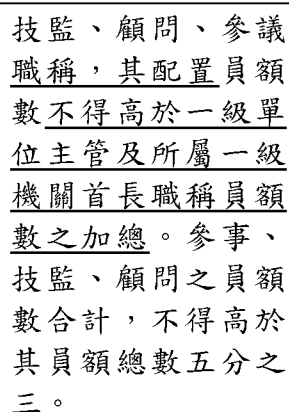 技監、顧問、參議
職稱，其配置員額
數不得高於一級單
位主管及所屬一級
機關首長職稱員額
數之加總。參事、
技監、顧問之員額
數合計，不得高於
其員額總數五分之
三。